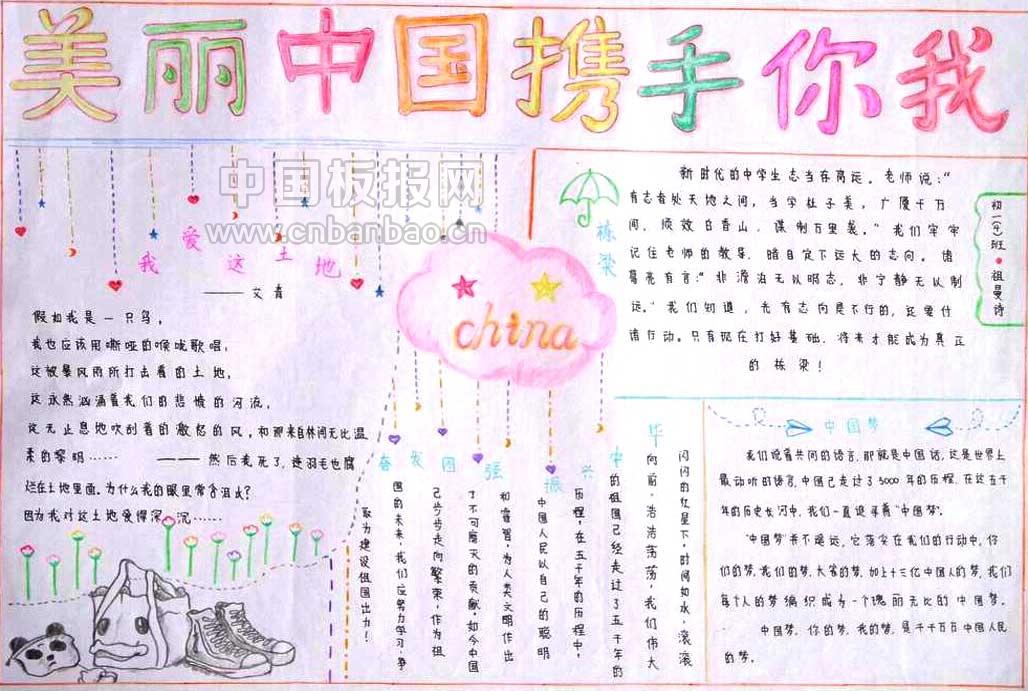 美丽中国携手你我
中国板报网
www.cnbanbao.cn
我爱这土地
——文青
假如我是一只鸟,
我也应该用嘶哑的喉咙歌唱:
这被暴风雨所打击着的土地,
这永然汹涌着我们的悲愤的河流,
这无止息地吹刮着的激怒的风,和那来自林间无比温
柔的黎明……——然后我死了,连羽毛也腐
烂在土地里面。为什么我的眼里常含泪水?
因为我对这土地爱得深沉……
china
栋梁
新时代的中学生志当存高远。老师说:"
有志者处天地之间,当学杜子美,广厦千万
间,倾效白香山,谋制万里裘。"我们牢牢
记住老师的教导,暗自定下远大的志向。诸
葛亮有言:"非澹泊无以明志,非宁静无以制
远。"我们知道,光有志向是不行的,还要付
诸行动。只有现在打好基础,将来才能成为真正
的栋梁!
初一(9)班·祖曼诗
奋发图强 振兴中华
闪闪的红星下,时间如水,滚滚
向前,浩浩荡荡,我们伟大
的祖国已经走过了五千年的
历程,在五千年的历程中,
中国人民以自己的聪明
和睿智,为人类文明作出
了不可磨灭的贡献,如今中国
已步步走向繁荣,作为祖
国的未来,我们应努力学习,争
取为建设祖国出力!
中国梦
我们说着共同的语言,那就是中国话,这是世界上
最动听的语言,中国已走过了5000年的历程,在这五千
年的历史长河中,我们一直追寻着"中国梦"。
"中国梦"并不遥远,它落实在我们的行动中,你
们的梦,我们的梦,大爷的梦,加上十三亿中国人的梦,我们
每个人的梦编织成为一个瑰丽无比的中国梦。
中国梦,你的梦,我的梦,是千千万万中国人民
的梦。